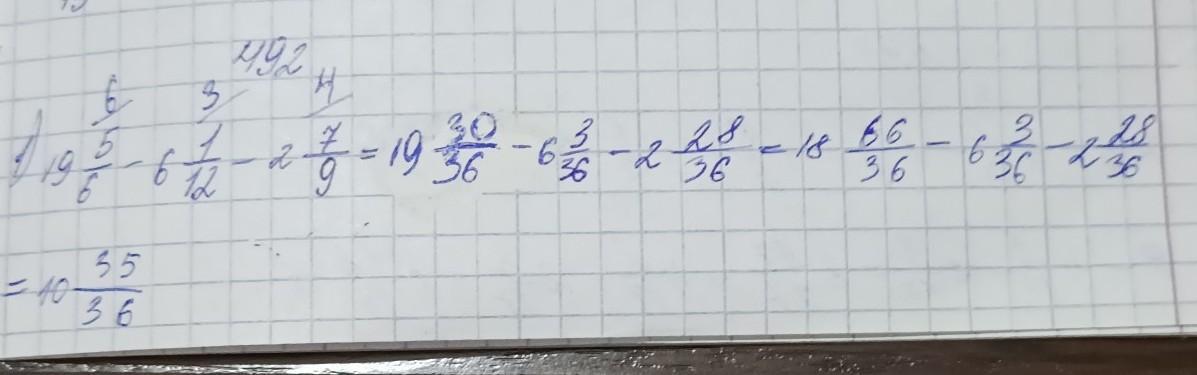 492
6 3 4
1) 19 5/6 - 6 1/12 - 2 7/9 = 19 30/36 - 6 3/36 - 2 28/36 = 18 66/36 - 6 3/36 - 2 28/36
= 10 35/36